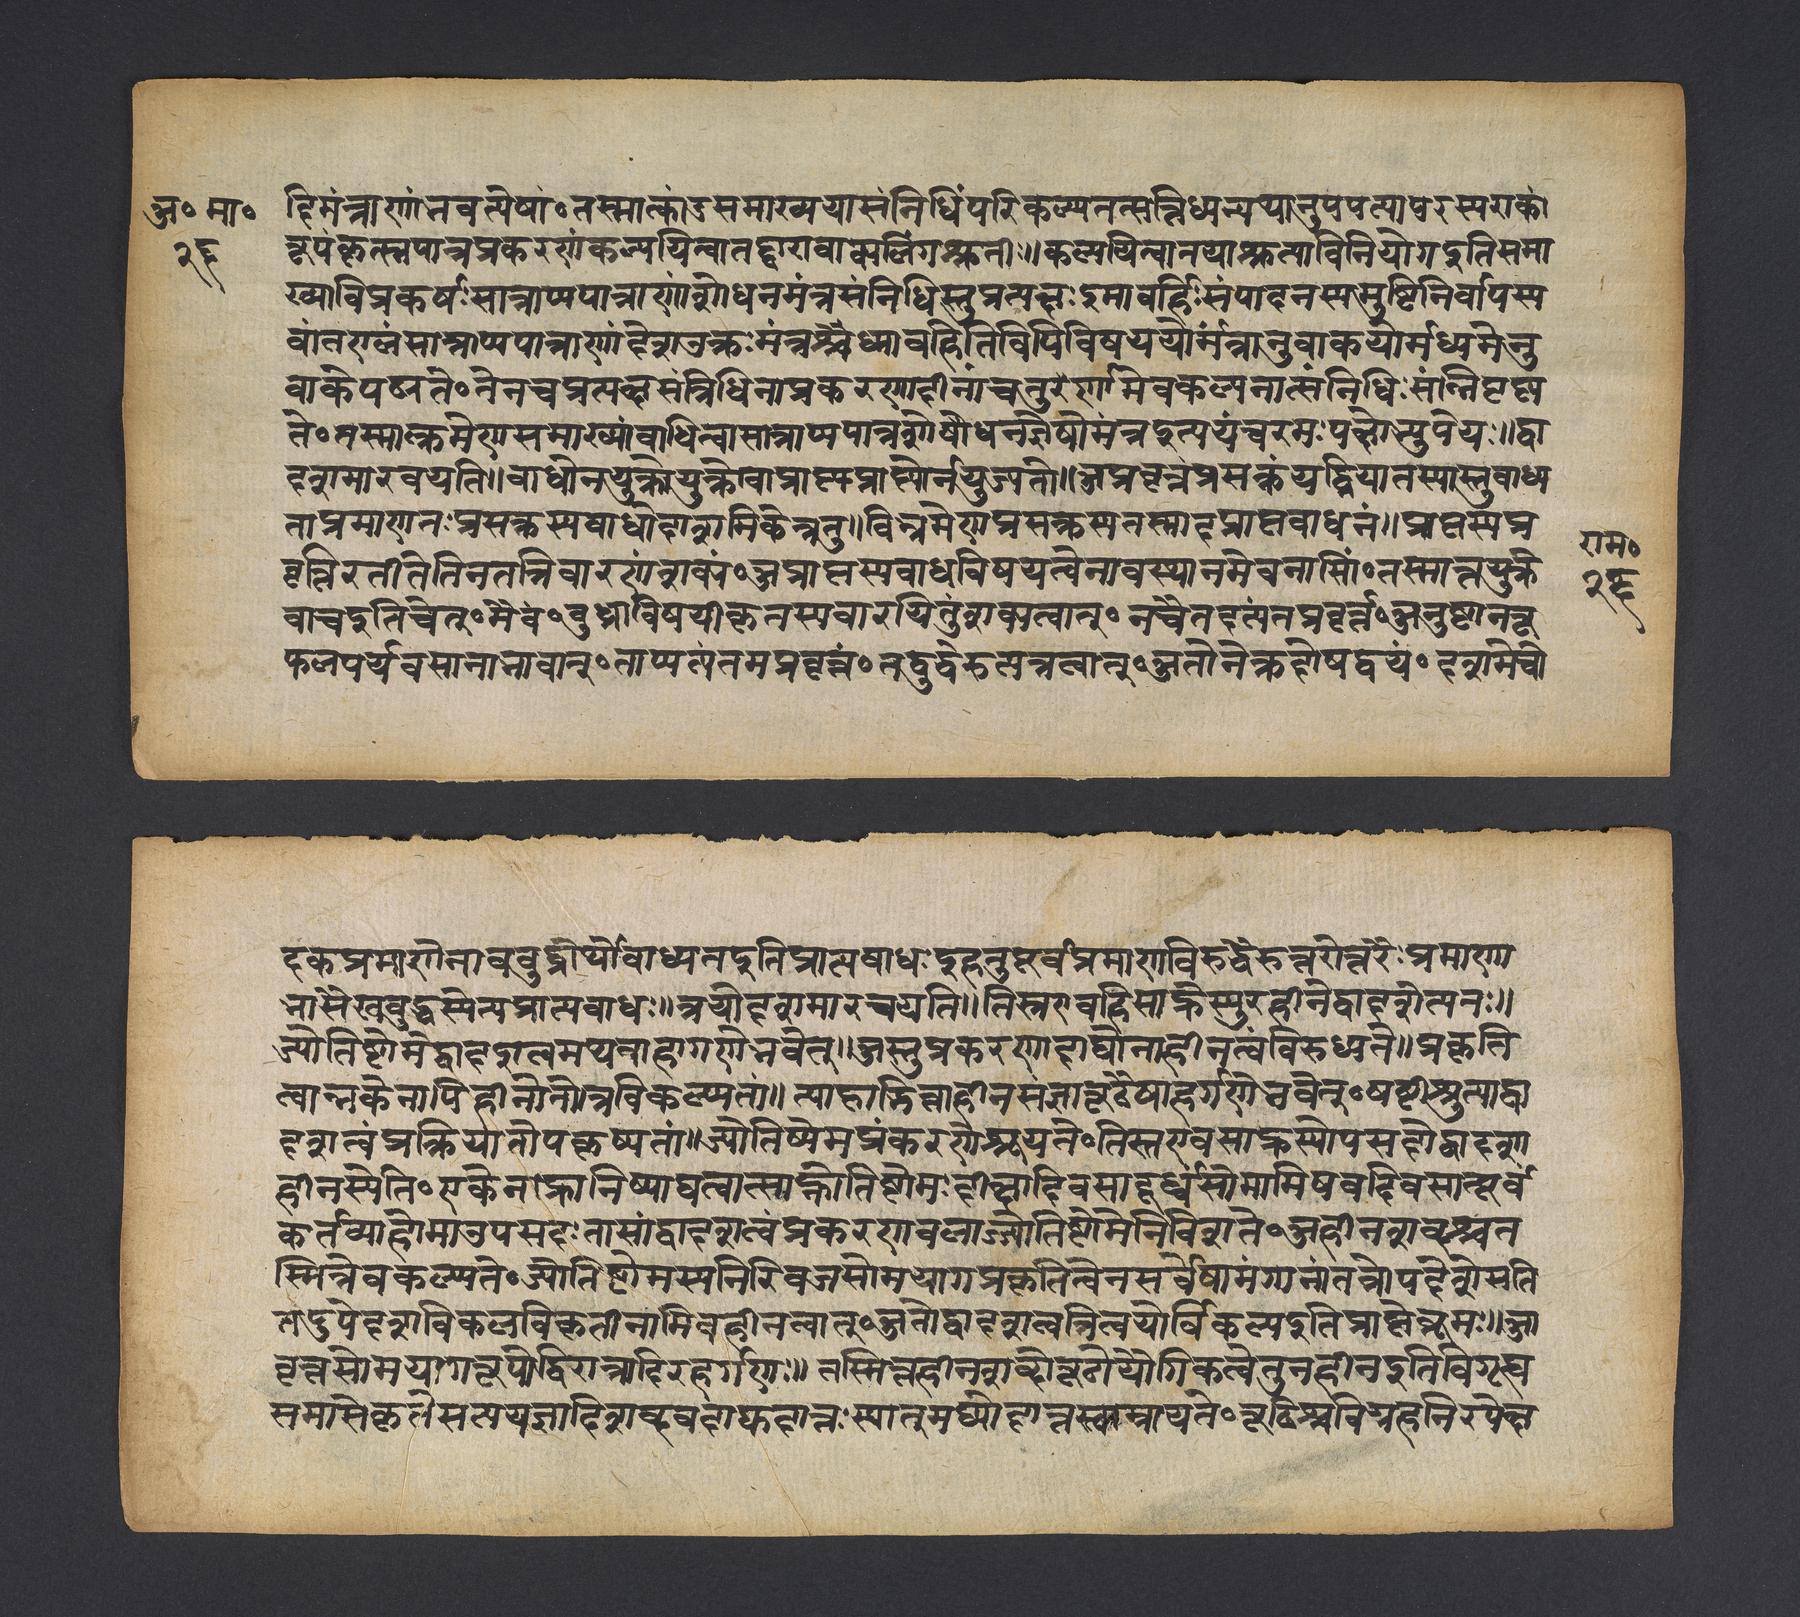 अ॰ मा॰
२६
हिमंत्राणां नवत्येषां॰तस्मात्कांडसमाख्ययासंनिधिंपरिकल्प्यतत्सन्निध्यन्यथानुपपत्यापरस्पराकां
रूपंकृत्स्नपात्रप्रकरणंकल्पयित्वातद्द्वारावाक्यलिंगश्रुतीः॥कल्पयित्वातयाश्रुत्याविनियोगइतिसमा
ख्याविप्रकर्षःसान्नाय्यपात्राणांशोधनमंत्रसंनिधिस्तुप्रत्यक्षःइमाबर्हिःसंपादनस्यमुष्टिनिर्वापस्य
वांतरालंसान्नाय्यपात्राणांदेशउक्तःमंत्रश्चेध्माबर्हितिविषयविषययोर्मंत्रानुवाकयोर्मध्यमेनु
वाकेपठ्यते॰तेनचप्रत्यक्षसंनिधिनाप्रकरणादीनांचतुर्णामेवकल्पनात्संनिधिःसंनिकृष्य
ते॰तस्मात्क्रमेणसमाख्यांबाधित्वासान्नाय्यपात्रशेषोधनशेषोमंत्रइत्ययंचरमःपक्षोभ्युपेयः॥द्वा
दशमारचयति॥बाधोनयुक्तोयुक्तोवाप्राप्त्यप्राप्त्योर्नयुज्यते॥अप्रवृत्तंप्रसक्तंयद्धियातस्यास्तुबाध्य
ताप्रमाणतःप्रसक्तस्यबाधोदाशमिकेननु॥विभ्रमेणप्रसक्तस्यतस्मादप्राप्तबाधनं॥प्राप्तस्यप्र
वृत्तिरतीतेतिनतन्निवारणंशक्यं॰अप्राप्तस्यबाधविषयत्वेनावस्थानमेवनास्ति॰तस्मान्नयुक्तो
बाधइतिचेत्॰मैवं॰बुध्याविषयीकृतस्यवारयितुंशक्यत्वात्॰नचैतदत्यंतप्रवृत्तं॰अनुष्ठानरू
फलपर्यवसानाभावात्॰नाप्यत्यंतमप्रवृत्तं॰तद्बुद्धेरुत्पन्नत्वात्॰अतोनोक्तदोषद्वयं॰दशमेचो
राम॰
२६
दकप्रमाणेनावबुद्धोर्थोबाध्यतइतिप्राप्तबाधःइहतुपूर्वप्रमाणविरुद्धैरुत्तरोत्तरैःप्रमाणा
भासैरवबुद्धस्येत्यप्राप्तबाधः॥त्रयोदशमारचयति॥तिस्रएवहिसाह्नेस्युरहीनेद्वादशेत्यतः॥
ज्योतिष्टोमेद्वादशत्वमथवाहर्गणेभवेत्॥अस्तुप्रकरणादाद्योनाहीनत्वंविरुध्यते॥प्रकृति
त्वान्नकेनापिहीनोतोत्रविकल्प्यतां॥त्यागाभिन्नाहीनसंज्ञारूढैषाहर्गणेभवेत्॰षष्ठीश्रुत्याद्वा
दशत्वंप्रक्रियातोपकृष्यतां॥ज्योतिष्टोमप्रकरणेश्रूयते॰तिस्रएवसाह्नस्योपसदोद्वादशा
हीनस्येति॰एकेनाह्नानिष्पाद्यत्वात्साह्नोज्योतिष्टोमःदीक्षादिवसादूर्ध्वंसोमाभिषवदिवसात्पूर्वं
कर्तव्याहोमाउपसदःतासांद्वादशत्वंप्रकरणबलाज्ज्योतिष्टोमेनिविशते॰अहीनशब्दश्चत
स्मिन्नेवकल्प्यते॰ज्योतिष्टोमस्यनिखिलसोमयागप्रकृतित्वेनसर्वेषामंगानांतत्रोपदेशेसति
तद्रूपेदशाविकलविकृतीनामिवहीनत्वात्॰अतोद्वादशत्वत्रित्वयोर्विकल्पइतिप्राप्तेब्रूमः॥आ
वृत्तसोमयागरूपोद्विरात्रादिरहर्गणः॥तस्मिन्नहीनशब्दोरूढोयौगिकत्वेतुनहीनइतिविगृह्य
समासेकृतेसत्ययज्ञादिशब्दवदाद्युदात्तःस्यात्मध्योदात्तस्त्वाम्नायते॰रूढिश्चविग्रहनिरपेक्षा